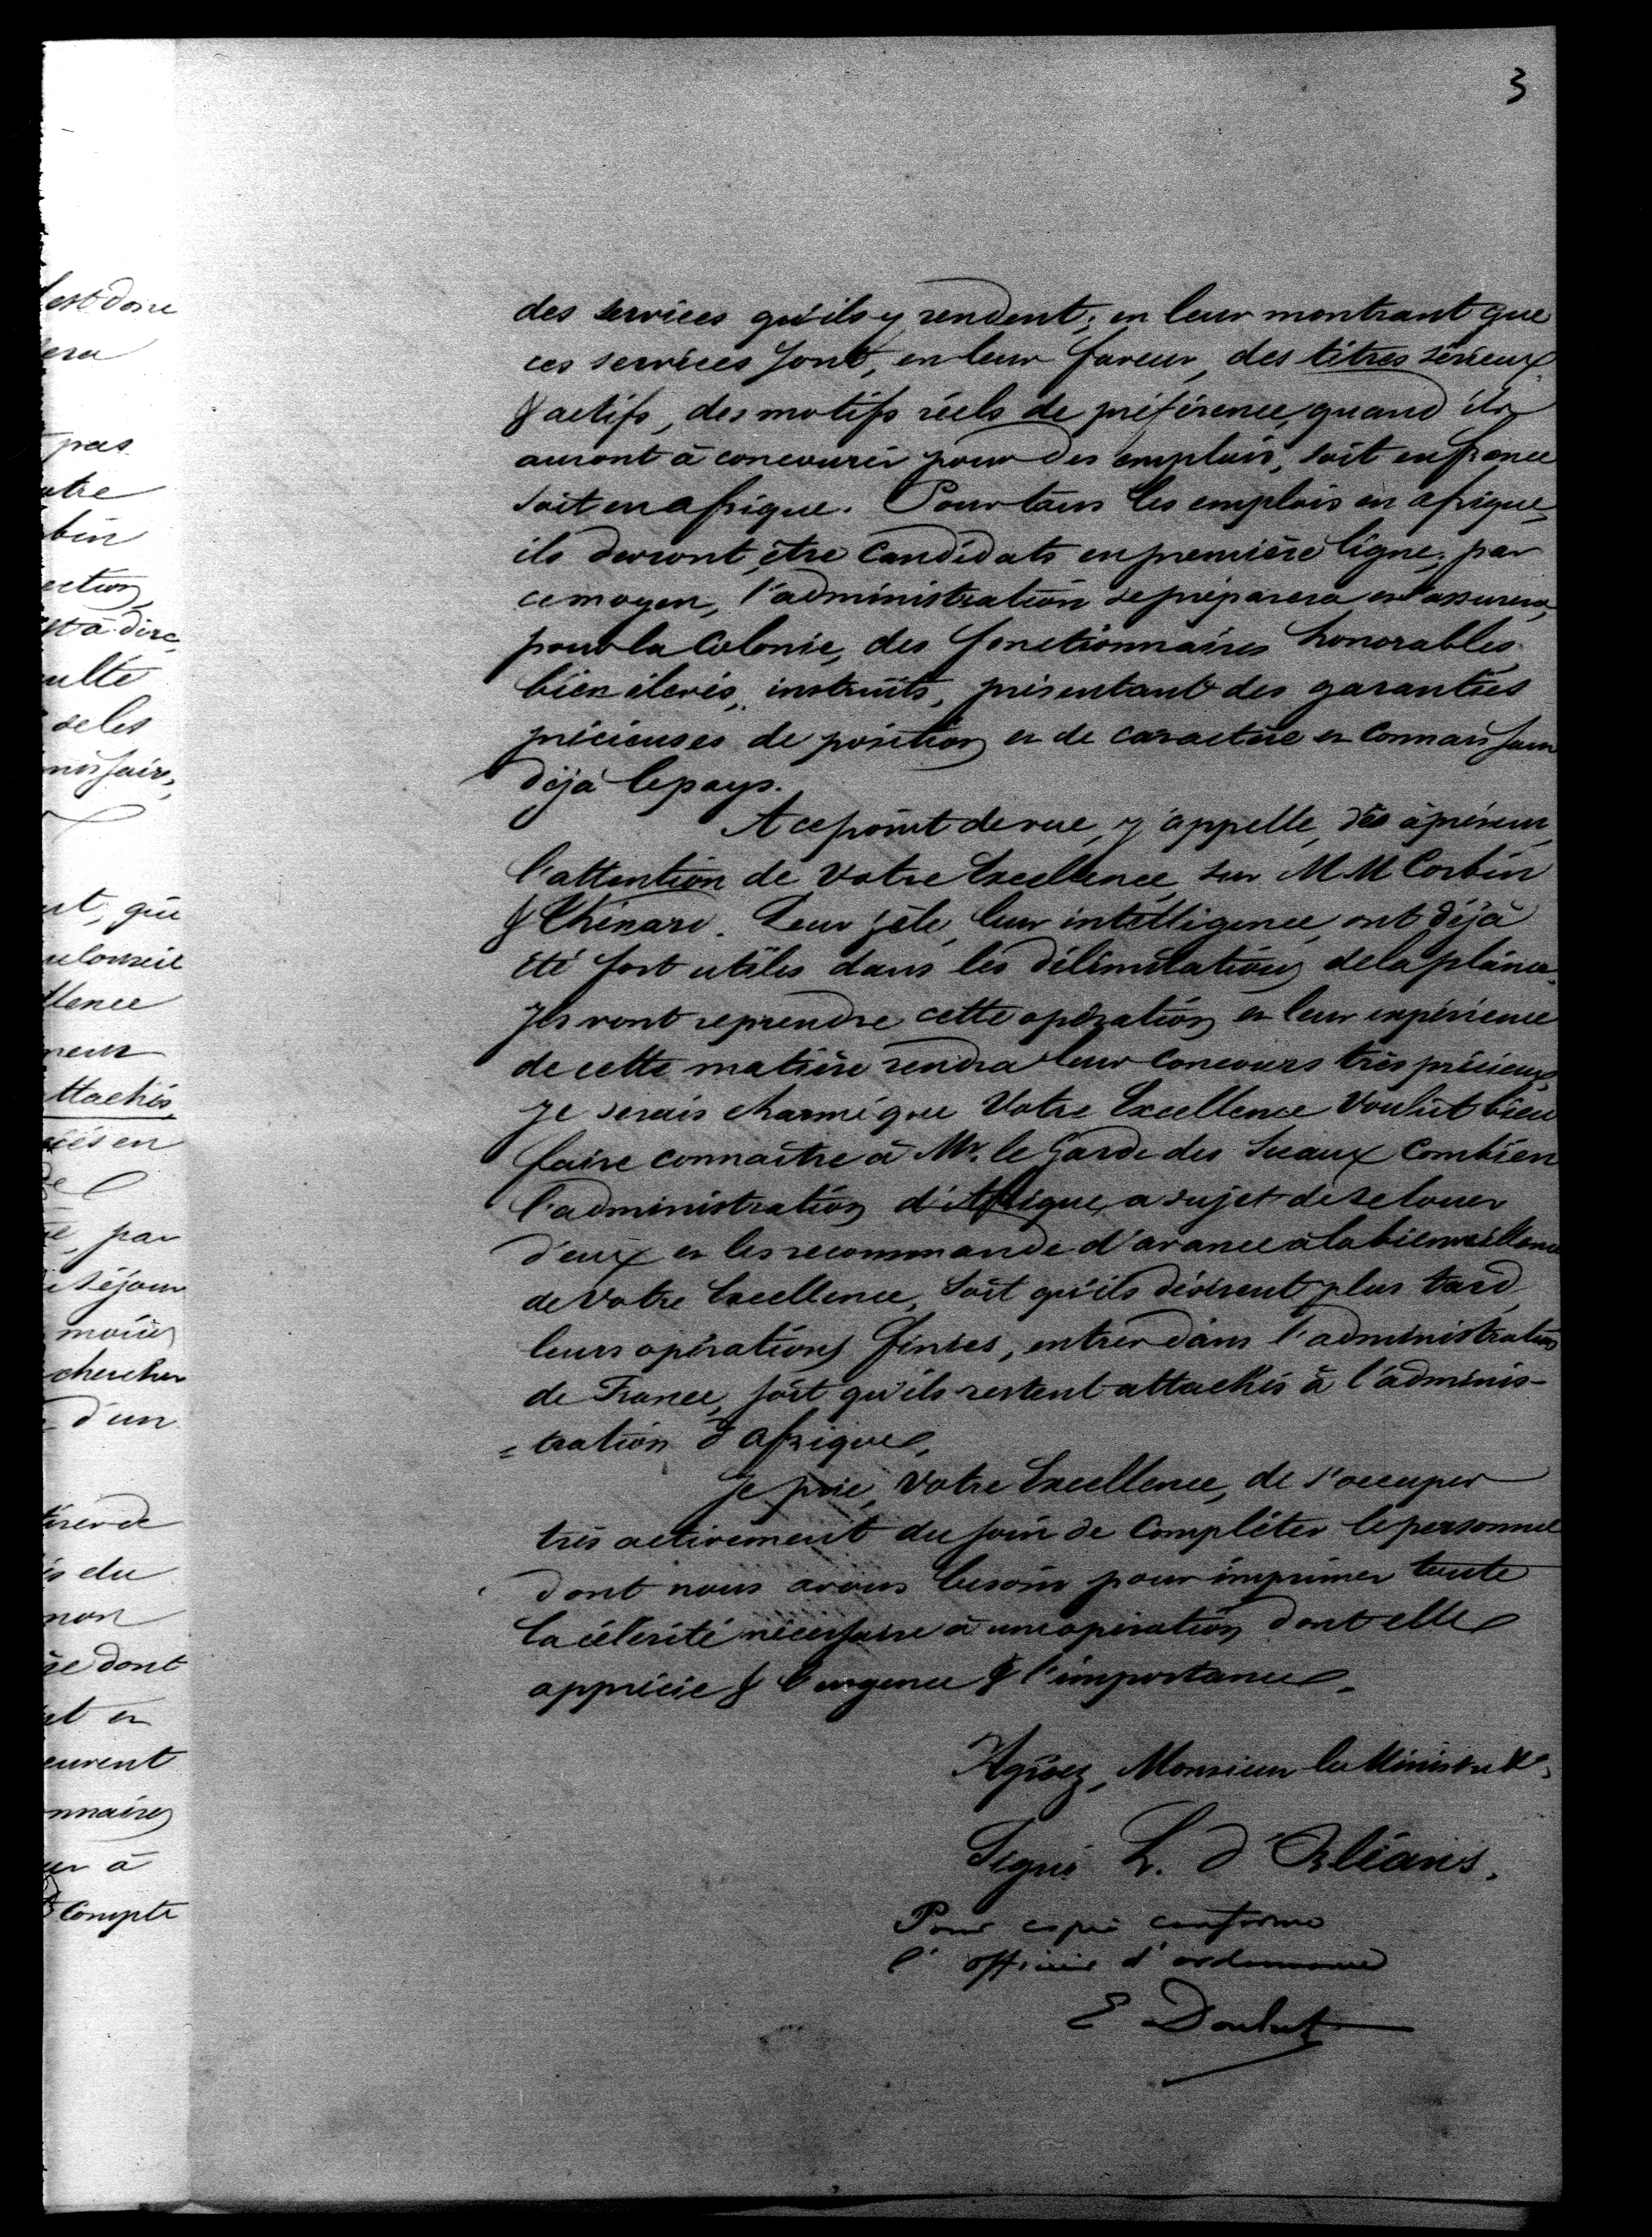 3
des services qu'ils y rendent; en leur montrant que
ces services sont, en leur faveur, des titres sérieux
& actifs, des motifs réels de préférence, quand ils
auront à concourir pour des emplois, soit en france
soit en afrique. Pour tous les emplois en afrique,
ils devront être candidats en première ligne; par
ce moyen, l'administration se préparera et assurera,
pour la Colonie, des fonctionnaires honorables,
bien élevés, instruits, présentant des garanties
précieuses de position et de caractère et connaissant
déjà le pays.
A ce point de vue, j'appelle, dès à présent,
l'attention de Votre Excellence, sur M M Corbin
& Thénard. Leur zèle, leur intelligence, ont déjà
été fort utiles dans les délimitations de la plaine.
Ils vont reprendre cette opération et leur expérience
de cette matière rendra leur concours très précieux.
Je serais charmé que Votre Excellence Voulût bien
faire connaître à Mr. le Garde des Sceaux Combien
l'administration d'Afrique, a sujet de se louer
d'eux et les recommande d'avance à la bienveillance
de Votre Excellence, soit qu'ils désirent plus tard,
leurs opérations finies, entrer dans l'administration
de France, soit qu'ils restent attachés à l'adminis-
=tration d'afrique.
Je prie, Votre Excellence, de s'occuper
très activement du soin de Compléter le personnel
dont nous avons besoin pour imprimer toute
la célérité nécessaire à une opération dont elle
apprécie & l'urgence & l'importance.
Agréez, Monsieur le Ministre &a.
Signé H. d'Orléans.
Pour copie conforme
l'officier d'ordonnance
est donc
sera
pas
bin
ection
st à dire,
ulté
de les
ut, que
llence
ttachés,
par
séjour
moins
chercher
d'un
is du
non
dont
nnaires
à
Compte